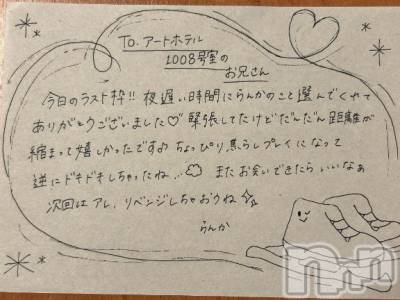 To. アートホテル
1008号室の
お兄さん
今日のラスト枠!! 夜遅い時間にらんかのこと選んでくれて
ありがとうございました♡ 緊張してたけどだんだん距離が
縮まって嬉しかったです♪ ちょっぴり焦らしプレイになって
逆にドキドキしちゃったね... またお会いできたらいいなぁ
次回はアレ、リベンジしちゃおうね☆
らんか